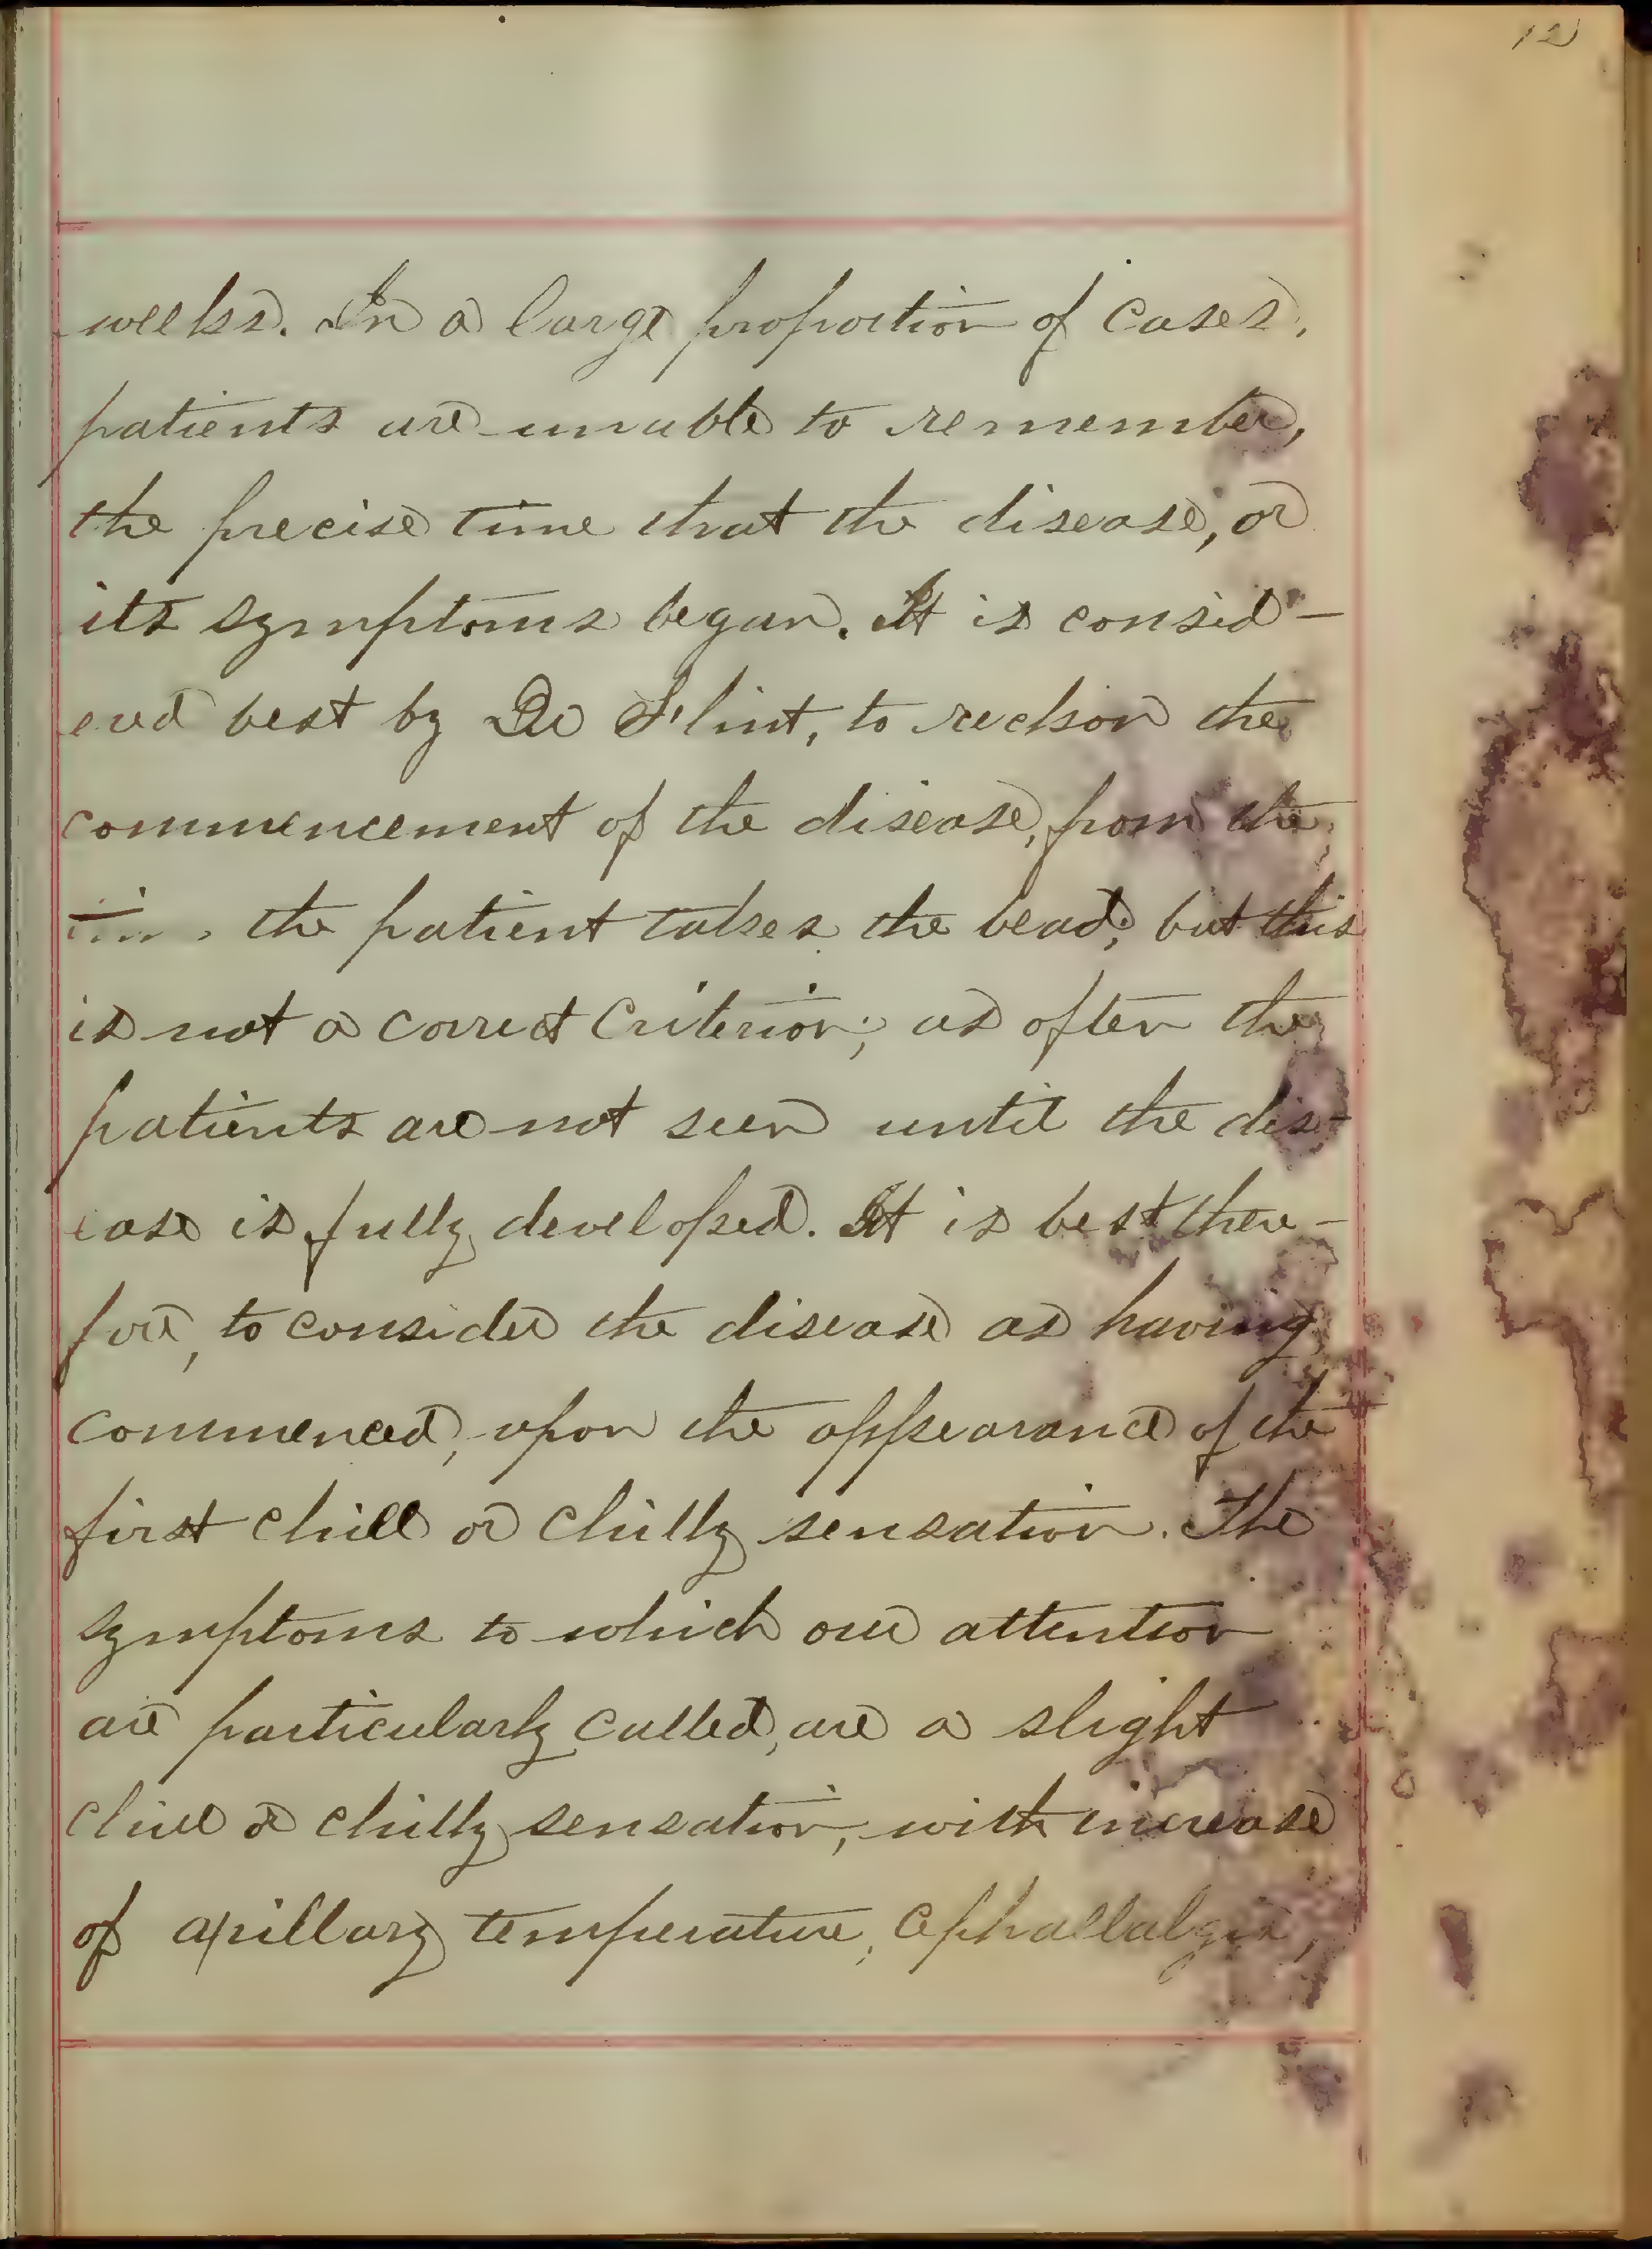 12
weeks. In a large proportion of cases,
patients are unable to remember,
the precise time that the disease, or
its symptoms began. It is consid-
ered best by Dr Flint, to reckon the
commencement of the disease, from the
time the patient takes the bead, but this
is not a correct criterion; as often the
patients are not seen until the dis-
ease is fully developed. It is best there-
fore, to consider the disease as having
commenced, upon the appearance of the
first chill or chilly sensation. The
symptoms to which our attention
are particularly called, are a slight
chill or chilly sensation, with increase
of axillary temperature, Cephallalgia,